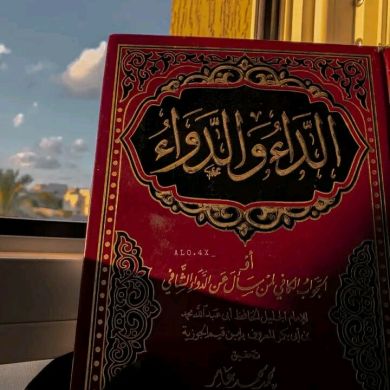 الدَّاءُ وَالدَّوَاءُ
ALO.4X_
أو
الجواب الكافي لمن سأل عن الدواء الشافي
للإمام الجليل الحافظ أبي عبد الله محمد
بن أبي بكر المعروف بابن قيم الجوزية
تحقيق